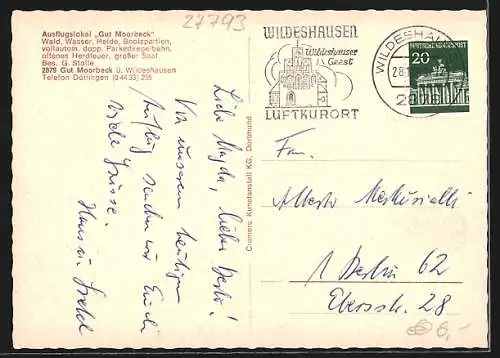 27793
Ausflugslokal „Gut Moorbeck"
Wald, Wasser, Heide, Bootspartien,
vollautom. dopp. Parkettkegelbahn,
offenes Herdfeuer, großer Saal
Bes. G. Stolle
2878 Gut Moorbeck ü. Wildeshausen
Telefon Dötlingen (0 44 33) 255
WILDESHAUSEN
Wildeshauser
Geest
LUFTKURORT
WILDESHAUSEN
28.
DEUTSCHE BUNDESPOST
20
Cramers Kunstanstalt KG, Dortmund
Liebe Magda, lieber
Von unserem heutigen
Ausflug senden wir Euch
viele Grüsse.
Hans u.
Frau
1 Berlin 62
Ebersstr. 28
6,-